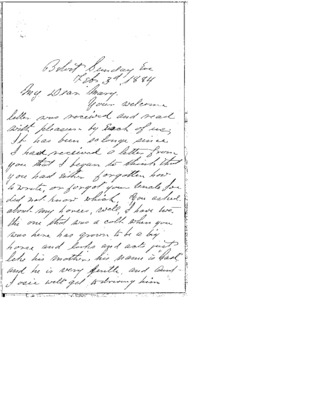 Beloit Sunday Eve
Feb. 3rd, 1884
My Dear Mary.
Your welcome
letter was received and read
with pleasure by each of us,
It has been so longe since
I had received a letter from
you that I began to think that
you had either forgotten how
to wrote, or forgot your
did not know which. You asked
about my horses, well, I have two
the one that was a colt when you
was here has grown to be a big
horse and looks and acts just
like his mother his name is
and he is very gentle, and
I can get to driving him